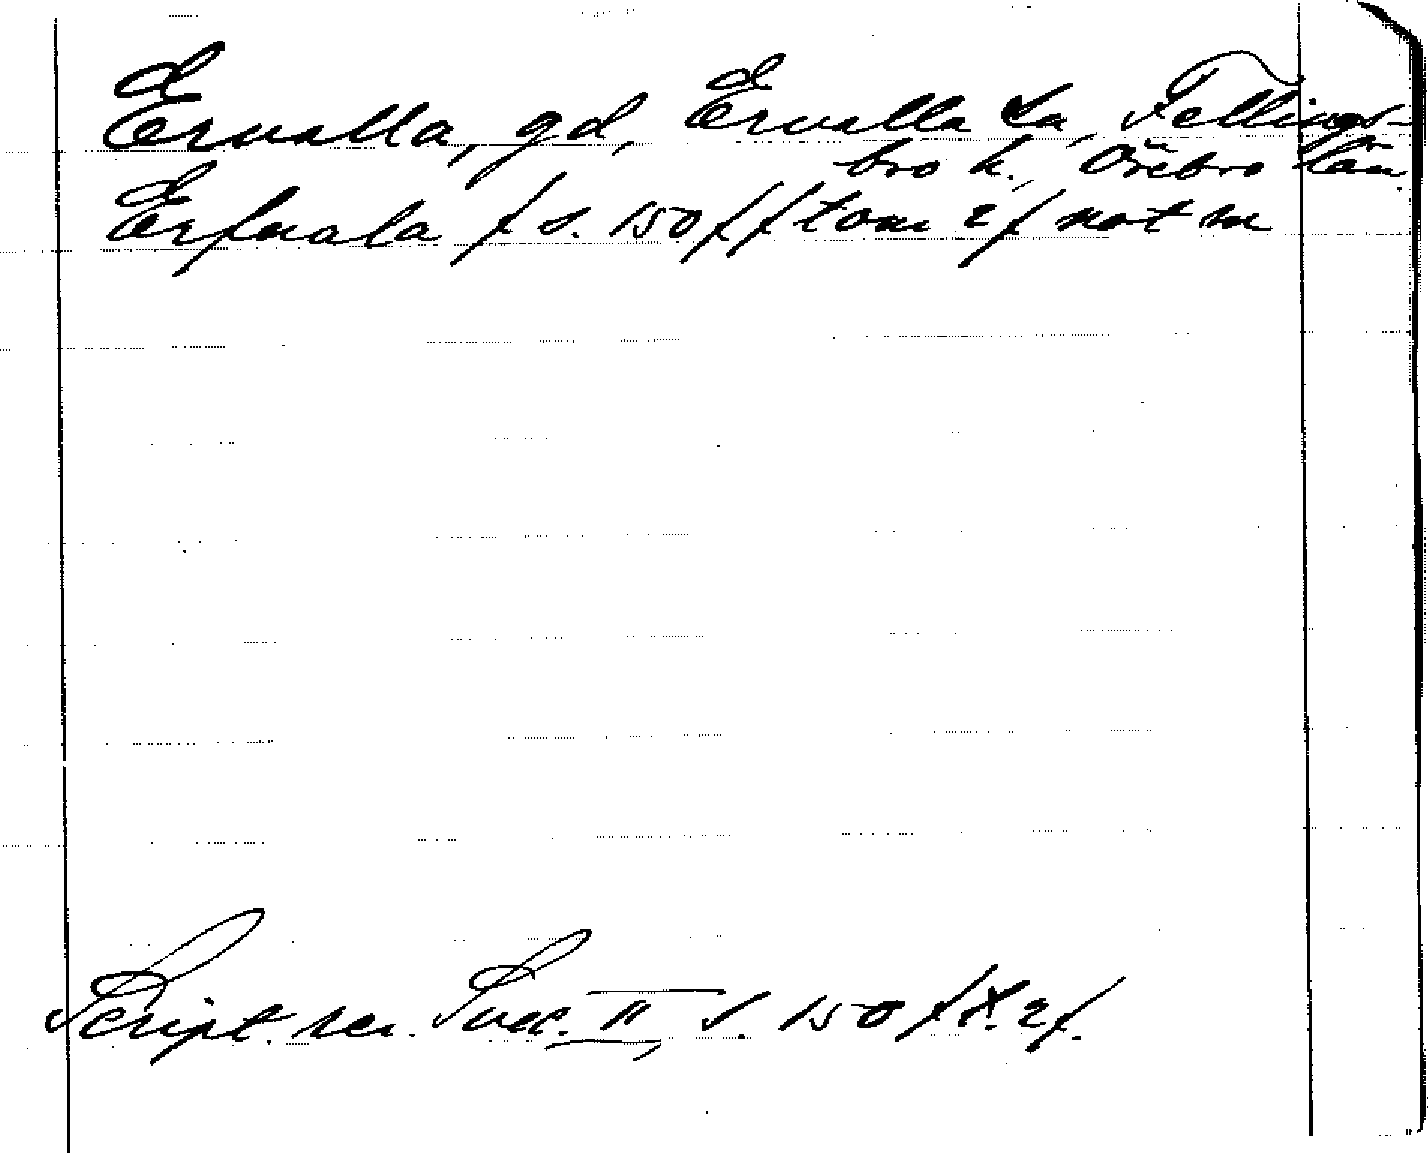 Ervalla, gd, Ervalla sn, Fellings-
bro h., Örebro län.
Erfuala / s. 150 / / tom 2 / not m
Script. rer. Svec. II, S. 150 / t. 2 /.